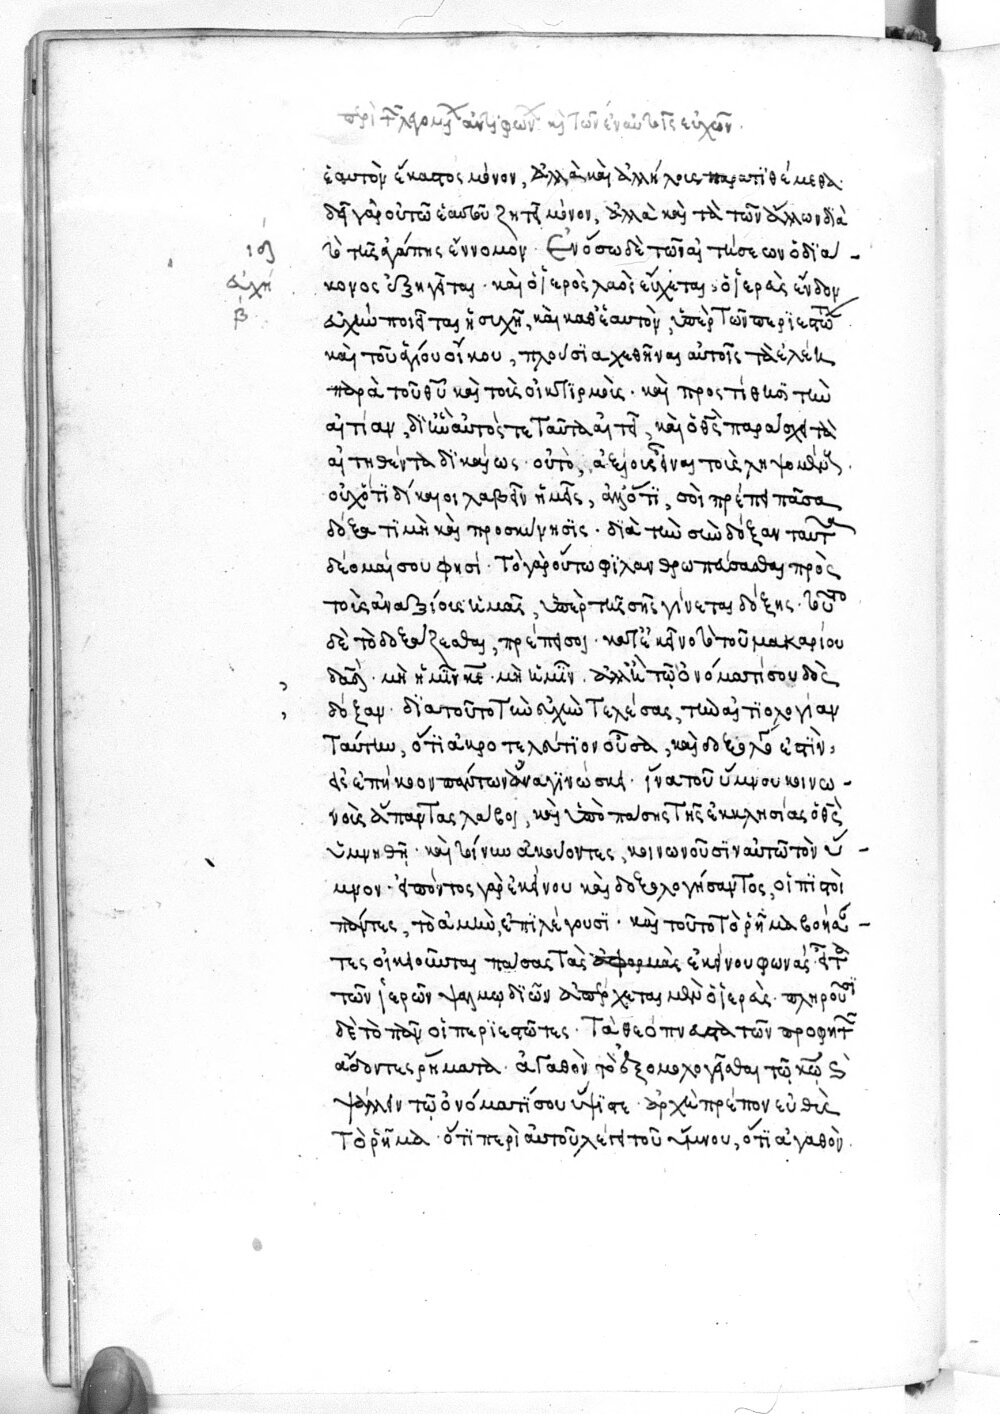 περὶ τῶν λεγομένων ἀντιφώνων καὶ τῶν ἐν αὐτοῖς εὐχῶν.
ἑαυτὸν ἕκαστος μόνον, ἀλλὰ καὶ ἀλλήλους παρατιθέμεθα·
δεῖ γὰρ οὐ τὸ ἑαυτοῦ ζητεῖν μόνον, ἀλλὰ καὶ τὰ τῶν ἄλλων διὰ
τὸ τῆς ἀγάπης ἔννομον· Ἐν ὅσω δὲ τῶν αἰτήσεων ὁ διά-
κονος ἐξηγεῖται· καὶ ὁ ἱερὸς λαὸς εὔχεται· ὁ ἱερεὺς ἔνδον
εὐχὴν ποιεῖται ἡσυχῆ, καὶ καθ' ἑαυτὸν, ὑπὲρ τῶν περιεστώτων
εὐχὴ
β
καὶ τοῦ ἁγίου οἴκου, πλουσία χεθῆναι αὐτοῖς τὰ ἐλέη
παρὰ τοῦ θυ καὶ τοὺς οἰκτιρμούς· καὶ προστίθησι τὴν
αἰτίαν, δι' ἣν αὐτός τε ταῦτα αἰτεῖ, καὶ ὁ θς παράσχῃ τὰ
αἰτηθέντα δικαίως· οὐ τὸ, ἀξίους εἶναι τοὺς ληψομένους.
οὐχ ὅτι δίκαιοι λαβεῖν ἡμεῖς, ἀλλ' ὅτι, σοὶ πρέπει πᾶσα
δόξα τιμὴ καὶ προσκύνησις· διὰ τὴν σὴν δόξαν ταῦτα
δέομαί σου φησί· Τὸ γὰρ οὕτω φιλανθρωπεύσασθαι πρὸς
τοὺς ἀναξίους ἡμᾶς, ὑπὲρ τῆς σῆς γίνεται δόξης· τοῦτο
δὲ τὸ δοξάζεσθαι, πρέπει σοι· κατ' ἐκεῖνο τὸ τοῦ μακαρίου
δαδ· μὴ ἡμῖν κε· μὴ ἡμῖν· ἀλλ' ἢ τῶ ὀνόματί σου δὸς
δόξαν· διὰ τοῦτο τὴν εὐχὴν τελέσας, τὴν αἰτιολογίαν
ταύτην, ὅτι ἀκροτελεύτιον οὖσα, καὶ δοξολογία ἐστὶν,
εἰς ἐπήκοον πάντων ἀναγινώσκει· ἵνα τοῦ ὕμνου κοινω-
νοὺς ἅπαντας λάβοι, καὶ ὑπὸ πάσης τῆς ἐκκλησίας ὁ θς
ὑμνηθῇ· καὶ τοίνυν ἀκούοντες, κοινωνοῦσιν αὐτῶ τὸν ὕ-
μνον· εἰπόντος γὰρ ἐκείνου καὶ δοξολογήσαντος, οἱ πιστοὶ
πάντες, τὸ ἀμὴν, ἐπιλέγουσι· καὶ τοῦτο τὸ ῥῆμα βοήσαν-
τες οἰκειοῦνται πάσας τὰς ἐκείνου φωνάς· εἶτα
τῶν ἱερῶν ψαλμωδιῶν ἀπάρχεται μὲν ὁ ἱερεύς· πληροῦσι
δὲ τὸ πᾶν οἱ περιεστῶτες· Τὰ θεόπνευστα τῶν προφητῶν
ἄδοντες ῥήματα· ἀγαθὸν τὸ ἐξομολογεῖσθαι τῶ κω καὶ
ψάλλειν τῶ ὀνόματί σου ὕψιστε· ἀρχὴ πρέπον εὐθὺς
τὸ ῥῆμα· ὅτι περὶ αὐτοῦ λέγει τοῦ ὕμνου, ὅτι ἀγαθὸν.